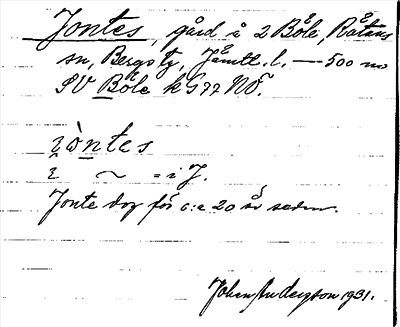 Jontes, gård i 2 Böle, Rätans
sn, Bergs tg, Jämtl. l. — 500 m
SV Böle k G 22 NÖ.
ı̯òntes
ı̯ ~ = i J.
Jonte dog för c:a 20 år sedan.
Johan Anderzson 1931.